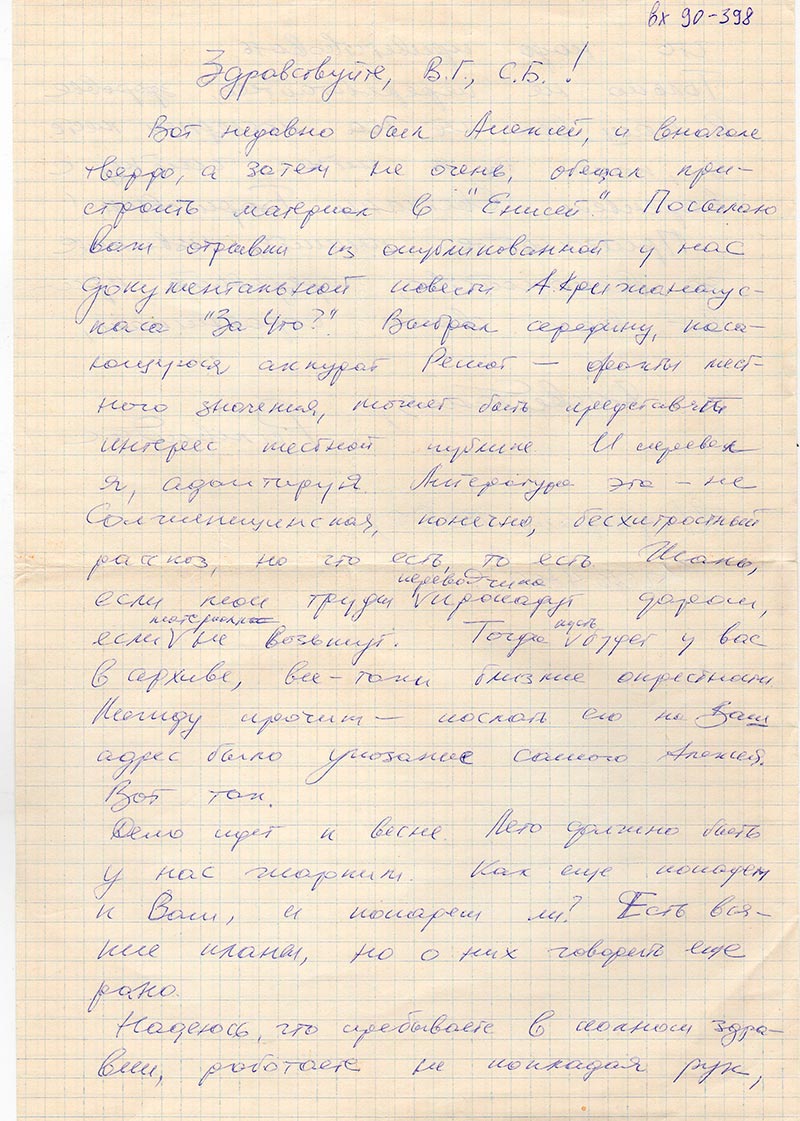 вх 90-398
Здравствуйте, В.Г., С.Б.!
Вот недавно был Алексей, и вначале
твердо, а затем не очень, обещал при-
строить материал в "Енисей". Посылаю
Вам отрывки из опубликованной у нас
документальной повести А.Крижанаус-
каса "За что?". Выбрал середину, каса-
ющуюся аккурат Решот — факты мест-
ного значения, может быть представят
интерес местной публике. И перевел
я, адаптируя. Литература эта – не
Солженицинская, конечно, бесхитростный
рассказ, но что есть, то есть. Жаль,
если мои труды переводчика пропадут даром,
если материал не возьмут. Тогда пусть будет у вас
в архиве, все-таки близкие окрестности.
Между прочим — послать его на Ваш
адрес было указание самого Алексея.
Вот так.
Дело идет к весне. Лето должно быть
у нас жарким. Как еще попадем
к Вам, и попадем ли? Есть вся-
кие планы, но о них говорить еще
рано.
Надеюсь, что пребываете в полном здра-
вии, работаете не покладая рук,